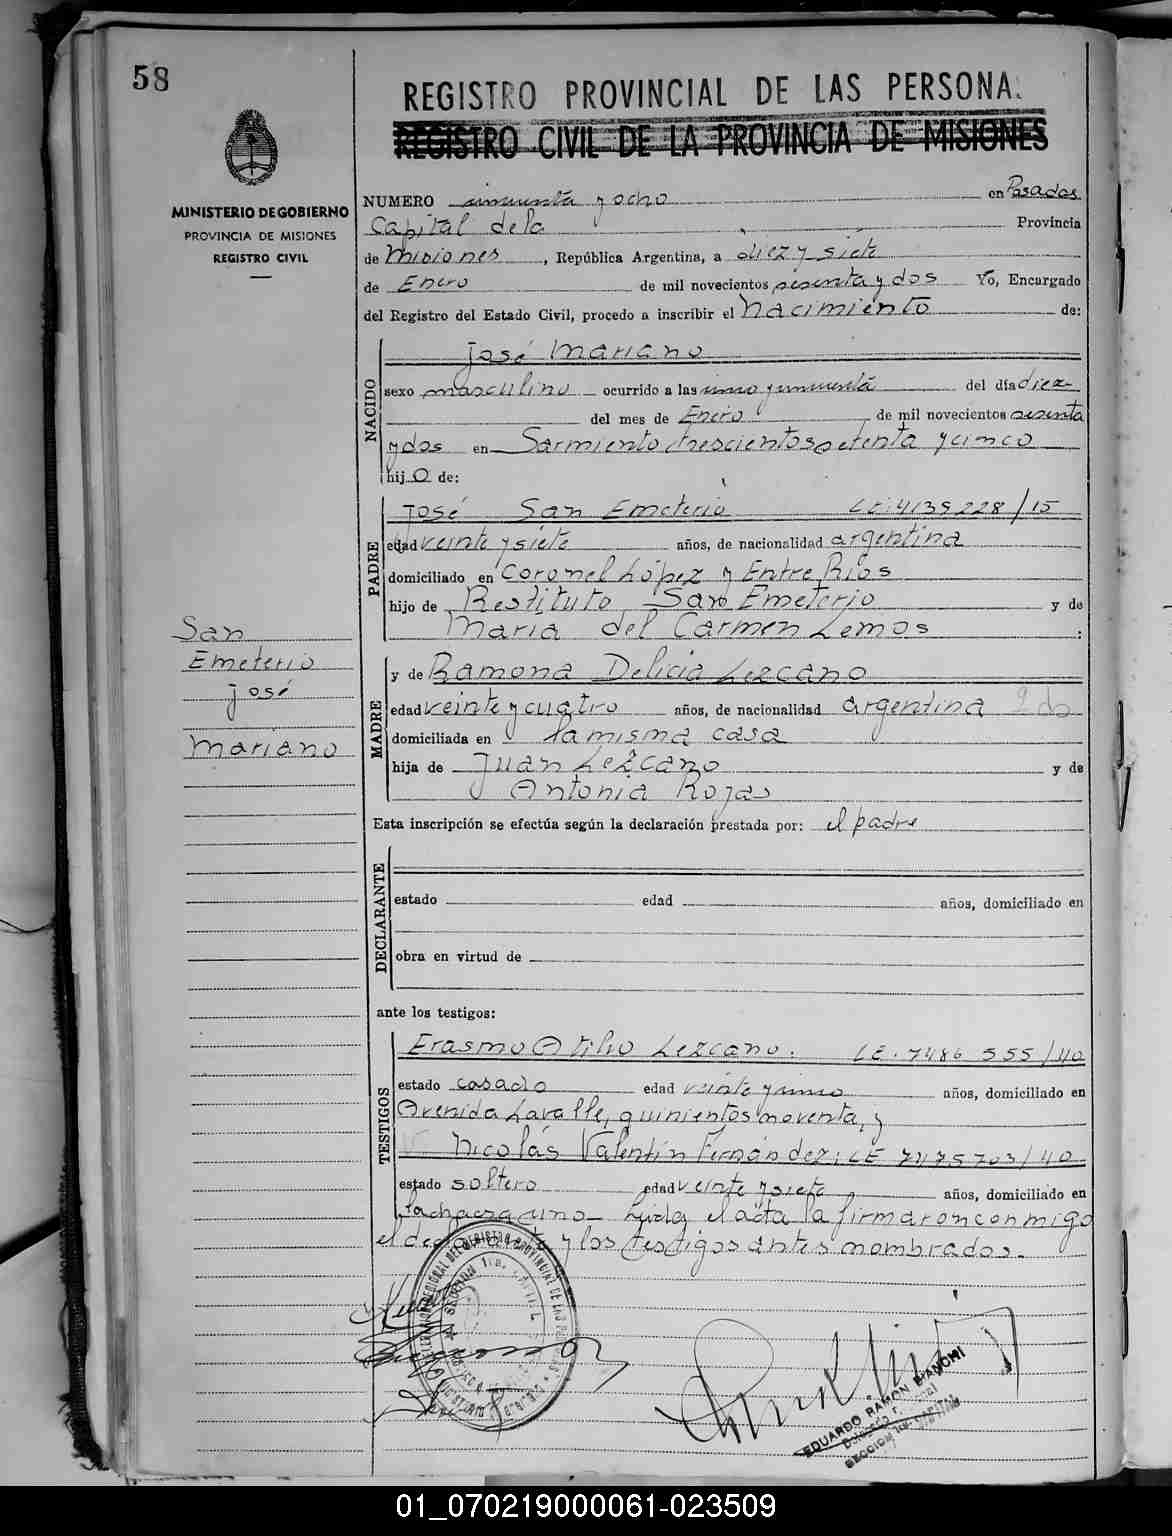 58
REGISTRO PROVINCIAL DE LAS PERSONA.
REGISTRO CIVIL DE LA PROVINCIA DE MISIONES
MINISTERIO DE GOBIERNO
PROVINCIA DE MISIONES
REGISTRO CIVIL
NUMERO cincuenta y ocho en Posadas
Capital de la Provincia
de Misiones, República Argentina, a diez y siete
de Enero de mil novecientos sesenta y dos Yo, Encargado
del Registro del Estado Civil, procedo a inscribir el Nacimiento de:
NACIDO
José Mariano
sexo masculino ocurrido a las una y cincuenta del día diez
del mes de Enero de mil novecientos sesenta
y dos en Sarmiento trescientos setenta y cinco
hijo de:
PADRE
José San Emeterio LE: 4139228/15
edad veinte y siete años, de nacionalidad argentina
domiciliado en Coronel López y Entre Ríos
hijo de Restituto San Emeterio y de
María del Carmen Lemos.
San
Emeterio
José
Mariano
MADRE
y de Ramona Delicia Lezcano
edad veinte y cuatro años, de nacionalidad argentina 2do
domiciliada en la misma casa
hija de Juan Lezcano y de
Antonia Rojas
Esta inscripción se efectúa según la declaración prestada por: el padre
DECLARANTE
estado edad años, domiciliado en
obra en virtud de
ante los testigos:
TESTIGOS
Erasmo Otilio Lezcano. LE. 7486 555/40
estado casado edad veinte y uno años, domiciliado en
Avenida Lavalle, quinientos noventa, y
Nicolás Valentín Fernández, LE 7475703/40
estado soltero edad veinte y siete años, domiciliado en
la chacra uno Leída el acta la firmaron conmigo
el declarante y los testigos antes nombrados.
EDUARDO RAMON BIANCHI
SECCION 1ra. CAPITAL
01_070219000061-023509